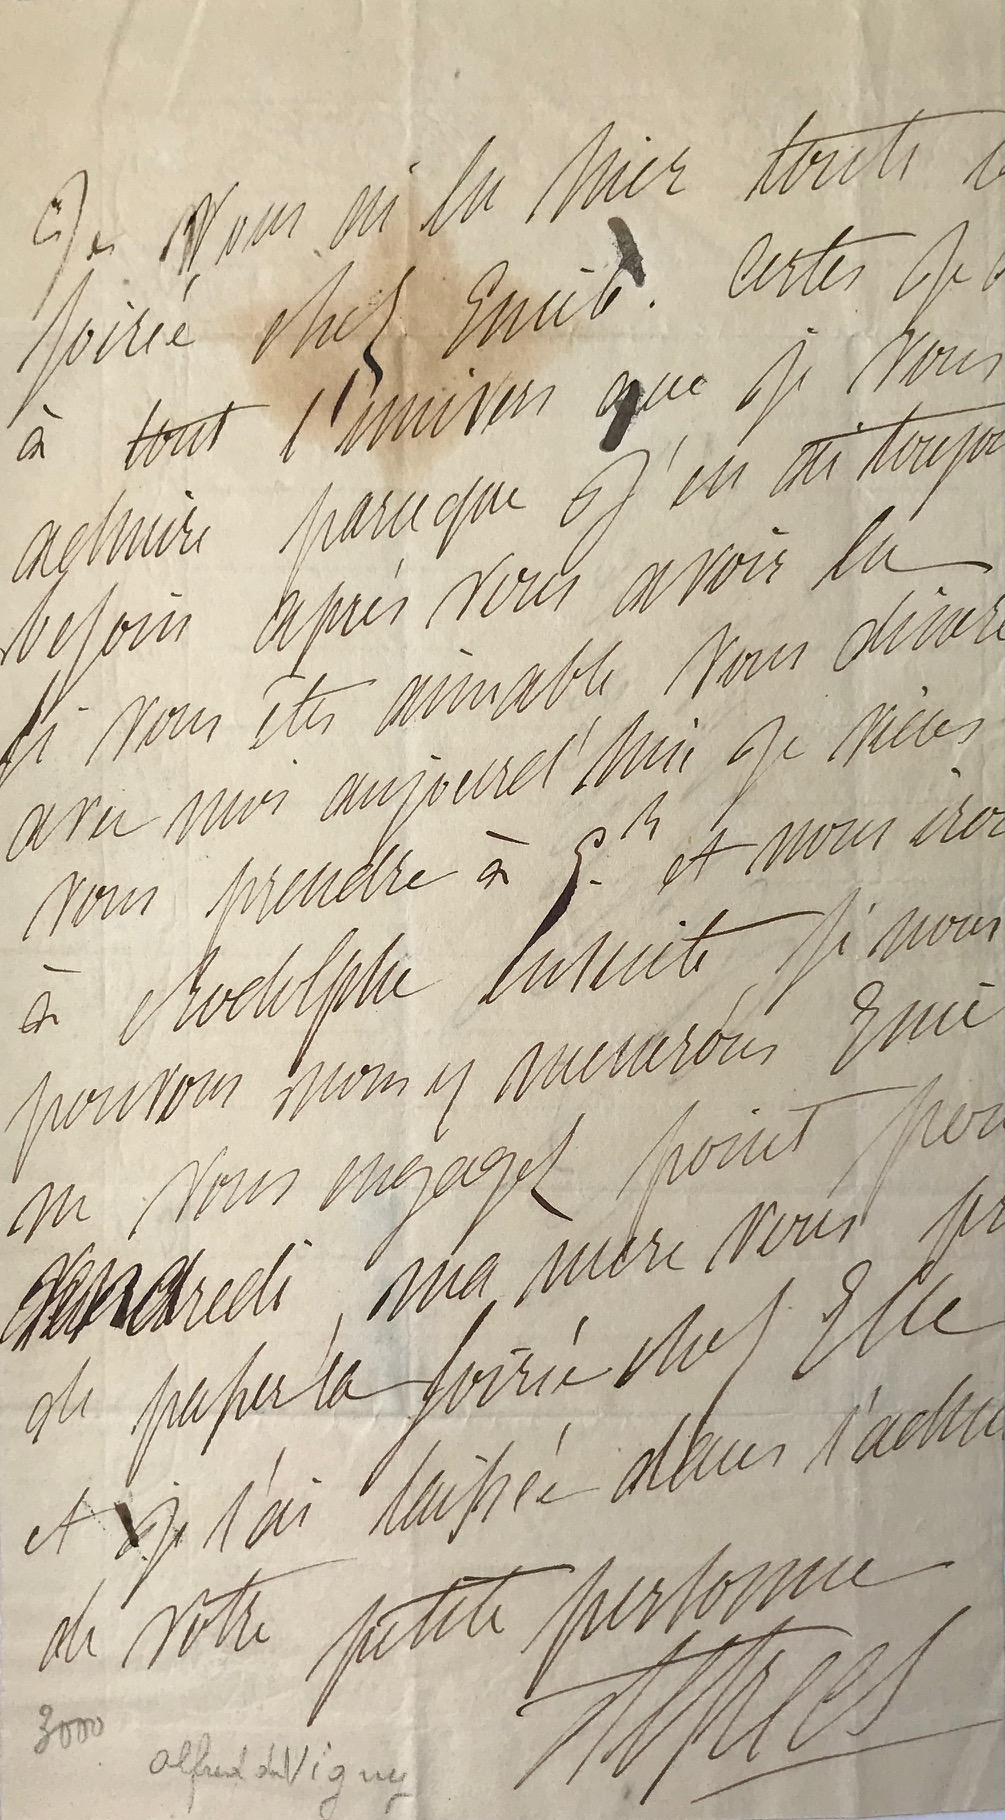 Je vous ai lu hier toute
soirée chez Emile. Certes je
à tout l'univers que je vous
admire parceque j'en ai toujou
besoin après vous avoir lu
Si vous êtes aimable vous dinere
avec moi aujourd'hui je viens
vous prendre à 5.h et nous iron
à Rodolphe ensuite si nous
pouvons nous y menerons Emil
ne vous engagez point pour
vendredi, ma mere vous pr
de passer la soirée chez Elle
et je l'ai laissée dans l'admi
de votre petite personne
3000
alfred de Vigny